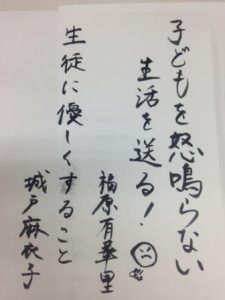 子どもを怒鳴らない
生活を送る!
福原有華里
生徒に優しくすること
城戸麻衣子